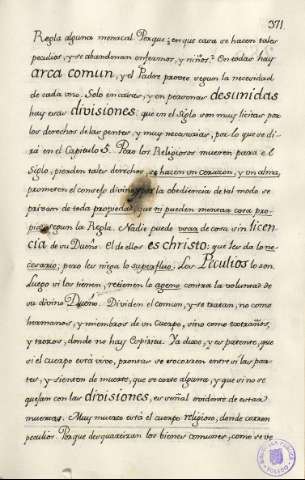 371.
Regla alguna monacal. Porque: en que casa se hacen tales
peculios, y se abandonan enfermos, y niños? En todas hay
arca comun, y el Padre provee segun la necesidad
de cada uno. Solo en casas, y en personas desunidas
hay esas divisiones: que en el Siglo son muy licitas por
los derechos de las gentes, y muy necesarias, por lo que se di-
rá en el Capitulo 5. Pero los Religiosos mueren para el
Siglo, pierden tales derechos, se hacen un corazon, y un alma,
prometen el consejo divino, por la obediencia de tal modo se
privan de toda propiedad, que ni pueden menear cosa pro-
pia segun la Regla. Nadie pueda usar de cosa sin licen
cia de su Dueño. El de ellos es christo: que les da lo ne-
cesario; pero les niega lo superfluo. Los Peculios lo son.
Luego si los tienen, retienen lo ageno contra la voluntad de
su divino Dueño. Dividen el comun, y se tratan, no como
hermanos, y miembros de un Cuerpo, sino como extraños,
y trozos, donde no hay Espiritu. Ya duxe, y es patente, que
si el cuerpo está vivo, prontas se socorren entre si las par-
tes, y sienten de muerte, que se corte alguna, y que si no se
quejan con las divisiones, es señal evidente de estar
muertas. Muy muerto está el cuerpo religioso, donde corren
peculios. Porque desquartizan los bienes comunes, como se ve